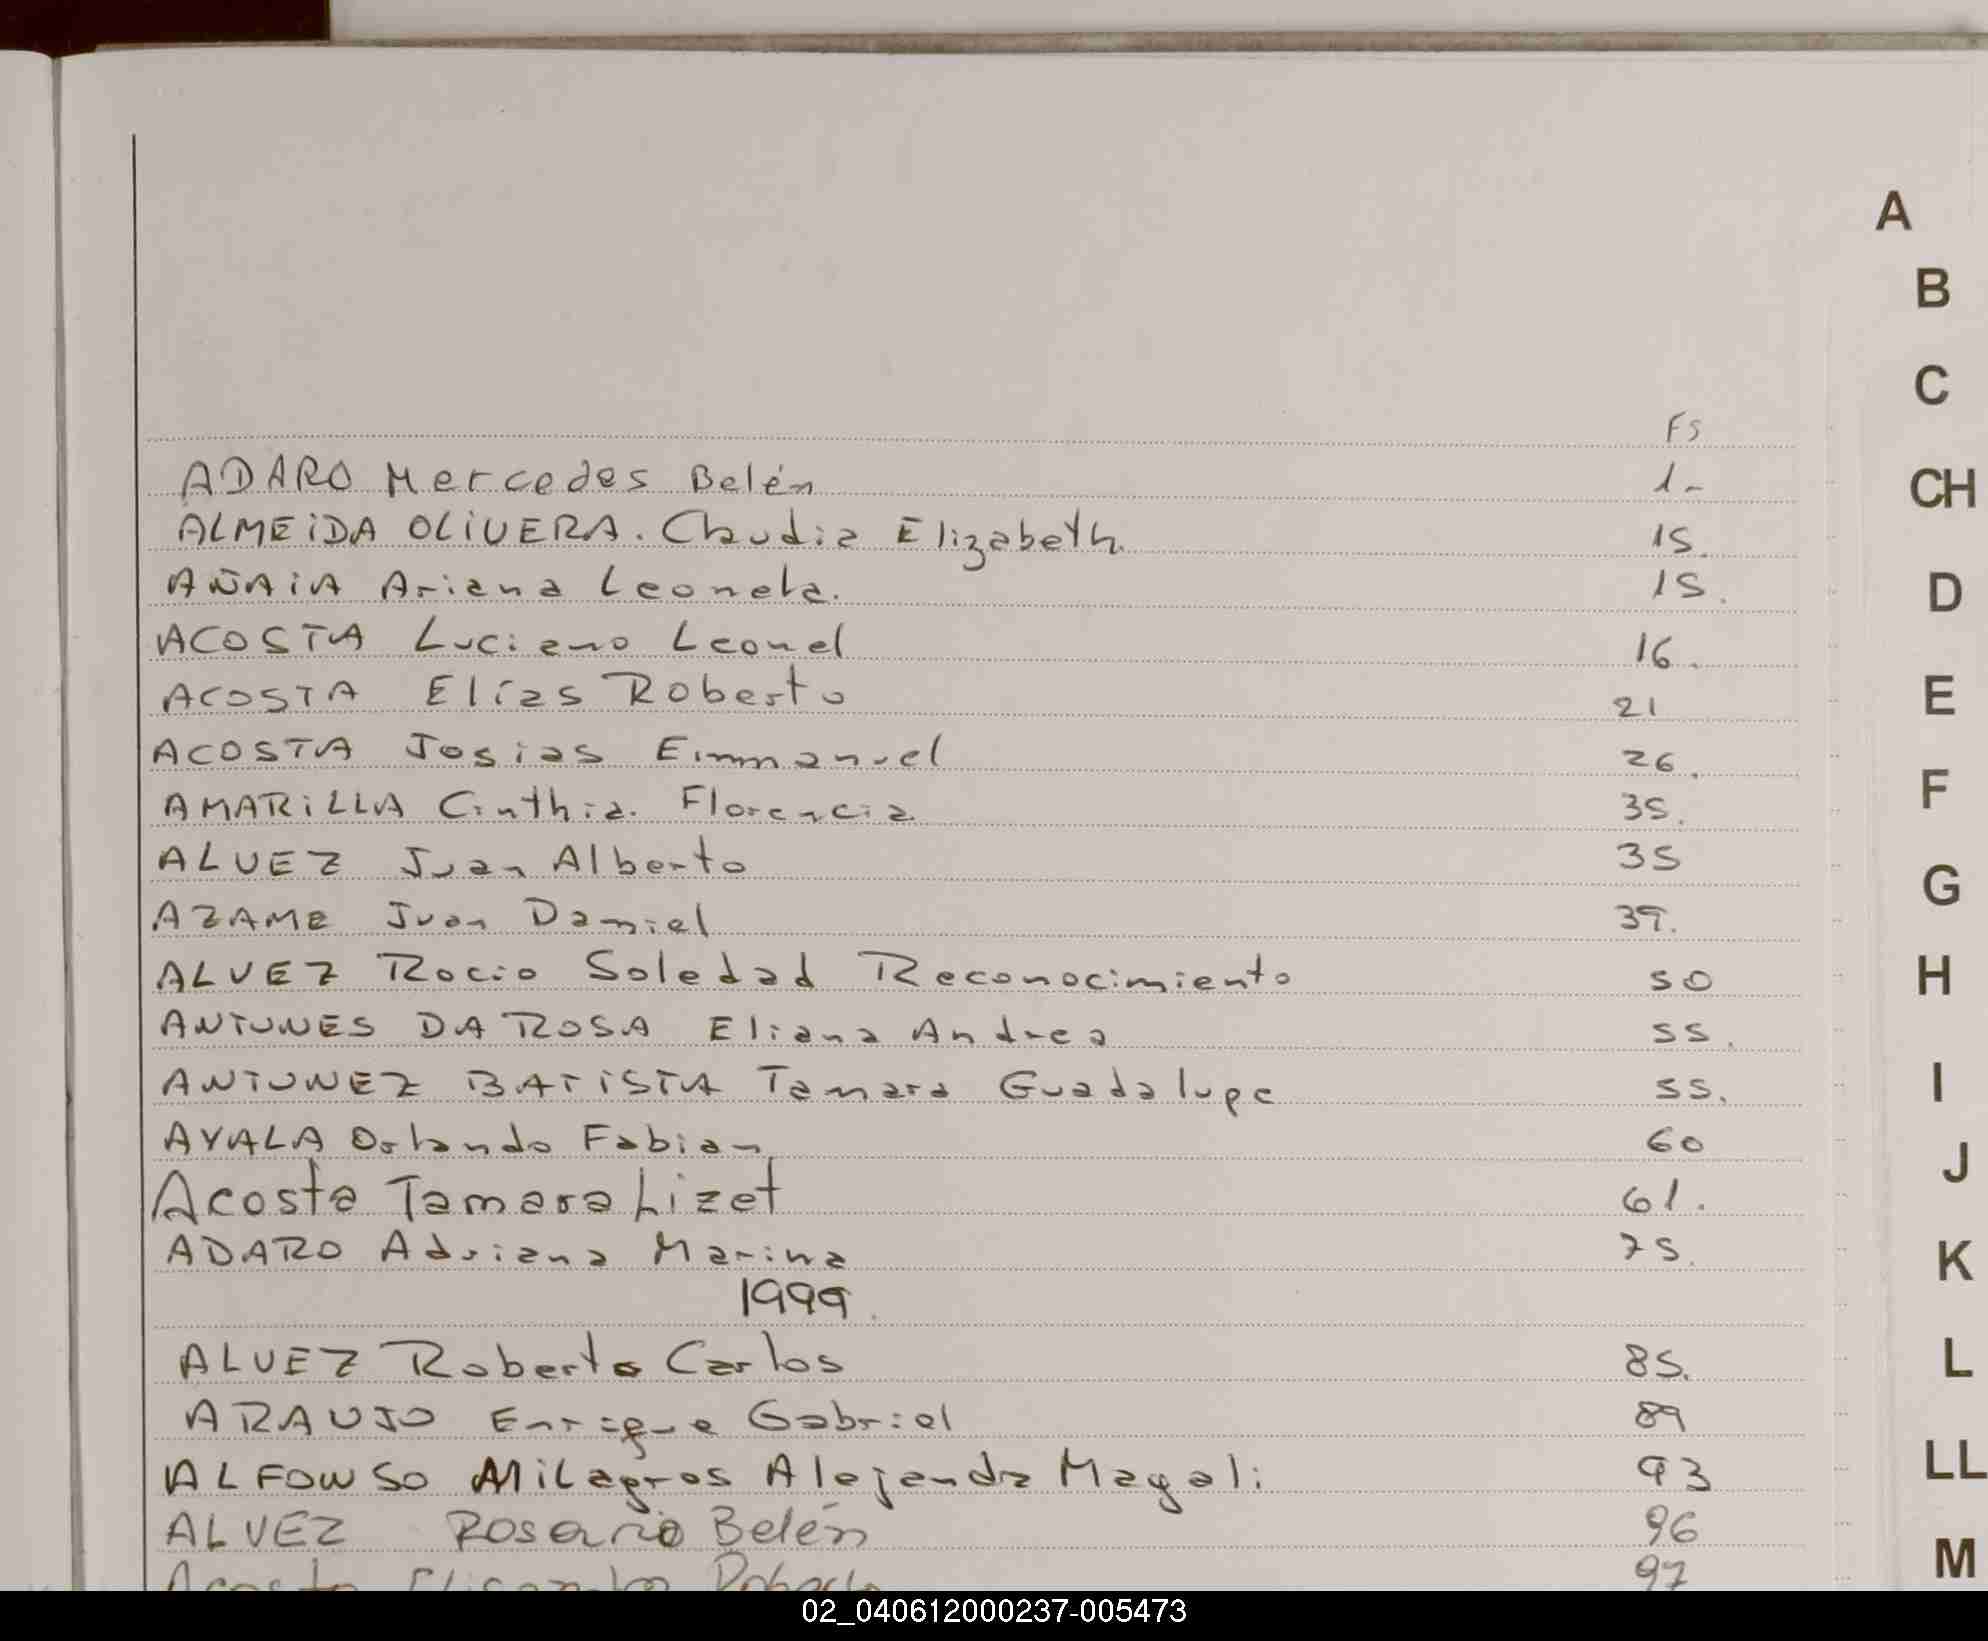 A
B
C
Fs
CH
ADARO Mercedes Belén 1-
ALMEiDA OLiVERA. Claudia Elizabeth. 15.
D
AÑAiA Ariana Leonela. 15.
ACOSTA Luciano Leonel 16.
E
ACOSTA Elías Roberto 21
ACOSTA Josias Emmanuel 26.
F
AMARiLLA Cinthia. Florencia 35.
ALVEZ Juan Alberto 35
G
AZAME Juan Daniel 39.
ALVEZ Rocio Soledad Reconocimiento 50
H
ANTUNES DA ROSA Eliana Andrea 55.
ANTUNEZ BATiSTA Tamara Guadalupe 55.
I
AYALA Orlando Fabian 60
J
Acosta Tamara Lizet 61.
ADARO Adriana Marina 75.
K
1999.
ALVEZ Roberto Carlos 85.
L
ARAUJO Enrique Gabriel 89
ALFONSO Milagros Alejandra Magali 93
LL
ALVEZ Rosario Belén 96
M
Acosta 97
02_040612000237-005473